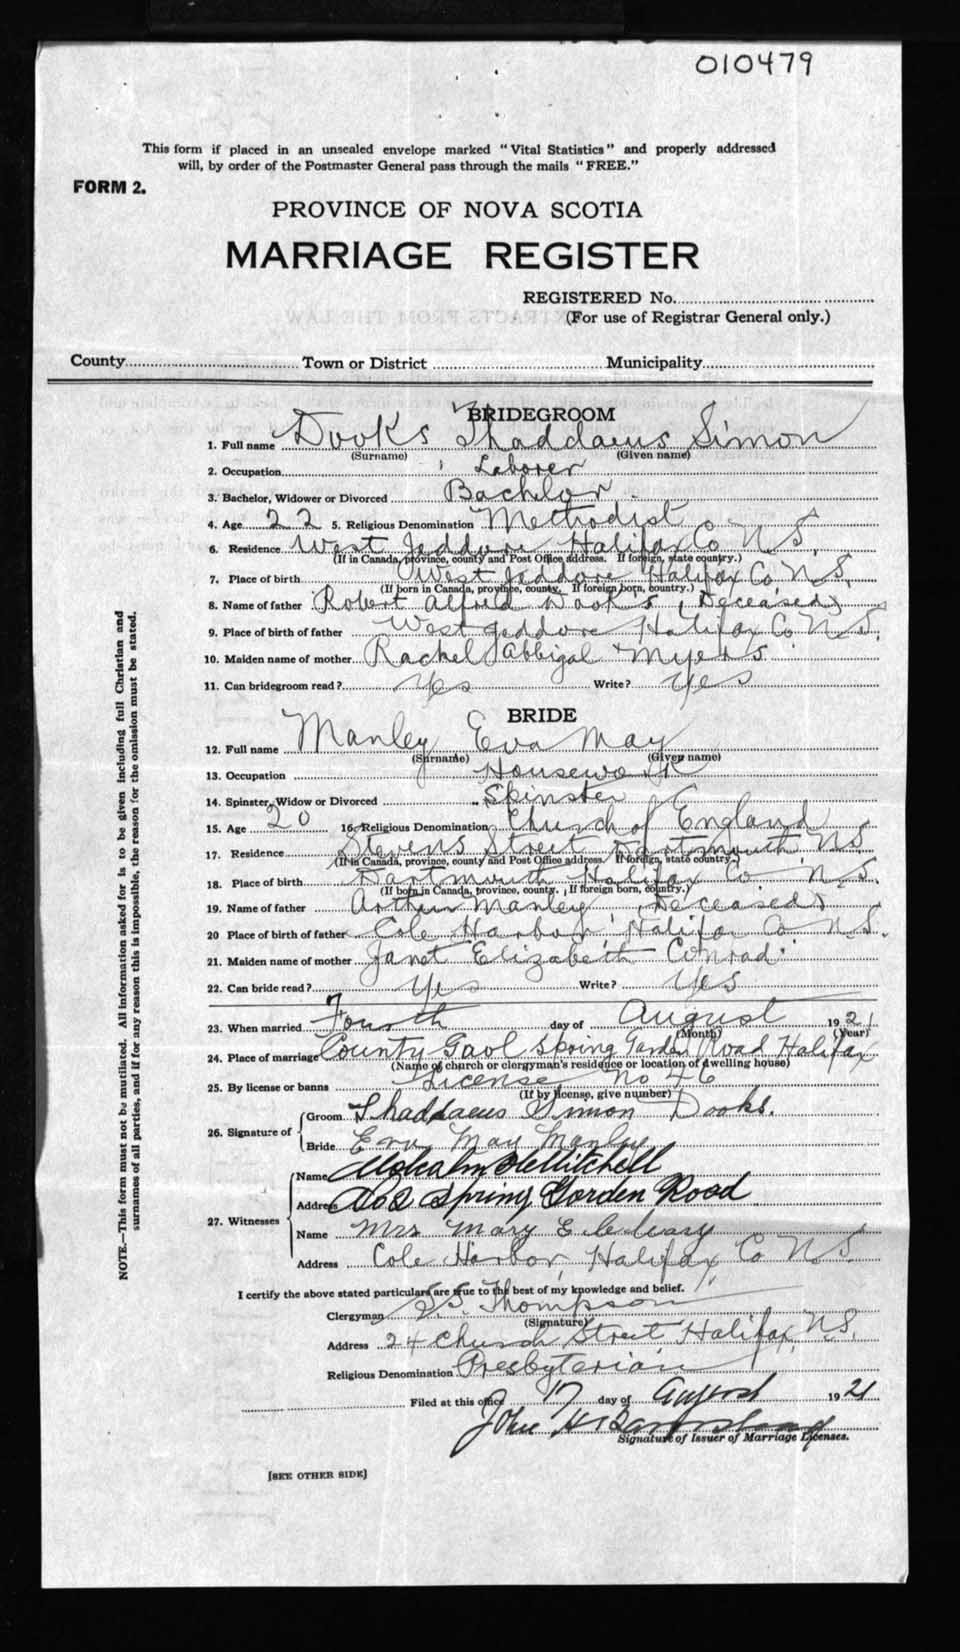 010479
This form if placed in an unsealed envelope marked "Vital Statistics" and properly addressed
will, by order of the Postmaster General pass through the mails "FREE."
FORM 2.
PROVINCE OF NOVA SCOTIA
MARRIAGE REGISTER
REGISTERED No.
(For use of Registrar General only.)
County Town or District Municipality
BRIDEGROOM
1. Full name Dooks Thaddaeus Simon
(Surname) (Given name)
2. Occupation Laborer
3. Bachelor, Widower or Divorced Bachelor
4. Age 22 5. Religious Denomination Methodist
6. Residence West Jeddore Halifax Co N.S.
(If in Canada, province, county and Post Office address. If foreign, state country.)
7. Place of birth West Jeddore Halifax Co N.S.
(If born in Canada, province, county. If foreign born, country.)
8. Name of father Robert Alfred Dooks (Deceased)
9. Place of birth of father West Jeddore Halifax Co N.S.
10. Maiden name of mother Rachel Abbigal Myers
11. Can bridegroom read? Yes Write? Yes
BRIDE
12. Full name Manley Eva May
(Surname) (Given name)
13. Occupation Housework
14. Spinster, Widow or Divorced Spinster
15. Age 20 16. Religious Denomination Church of England
17. Residence Stevens Street Dartmouth N.S.
(If in Canada, province, county and Post Office address. If foreign, state country.)
18. Place of birth Dartmouth Halifax Co N.S.
(If born in Canada, province, county. If foreign born, country.)
19. Name of father Arthur Manley (Deceased)
20 Place of birth of father Cole Harbor, Halifax Co N.S.
21. Maiden name of mother Janet Elizabeth Conrad
22. Can bride read? Yes Write? Yes
23. When married Fourth day of August 1921
(Month) (Year)
24. Place of marriage County Gaol Spring Garden Road Halifax
(Name of church or clergyman's residence or location of dwelling house)
25. By license or banns License No 46
(If by license, give number)
26. Signature of Groom Thaddaeus Simon Dooks.
Bride Eva May Manley
27. Witnesses Name Malcolm Mitchell
Address Spring Gorden Road
Name Mrs Mary E.
Address Cole Harbor, Halifax, Co N.S.
I certify the above stated particulars are true to the best of my knowledge and belief.
Clergyman Thompson
(Signature)
Address 24 Church Street Halifax, N.S.
Religious Denomination Presbyterian
Filed at this office 17 day of August 1921
John
Signature of Issuer of Marriage Licenses.
[SEE OTHER SIDE]
NOTE.—This form must not be mutilated. All information asked for is to be given including full Christian and
surnames of all parties, and if for any reason this is impossible, the reason for the omission must be stated.